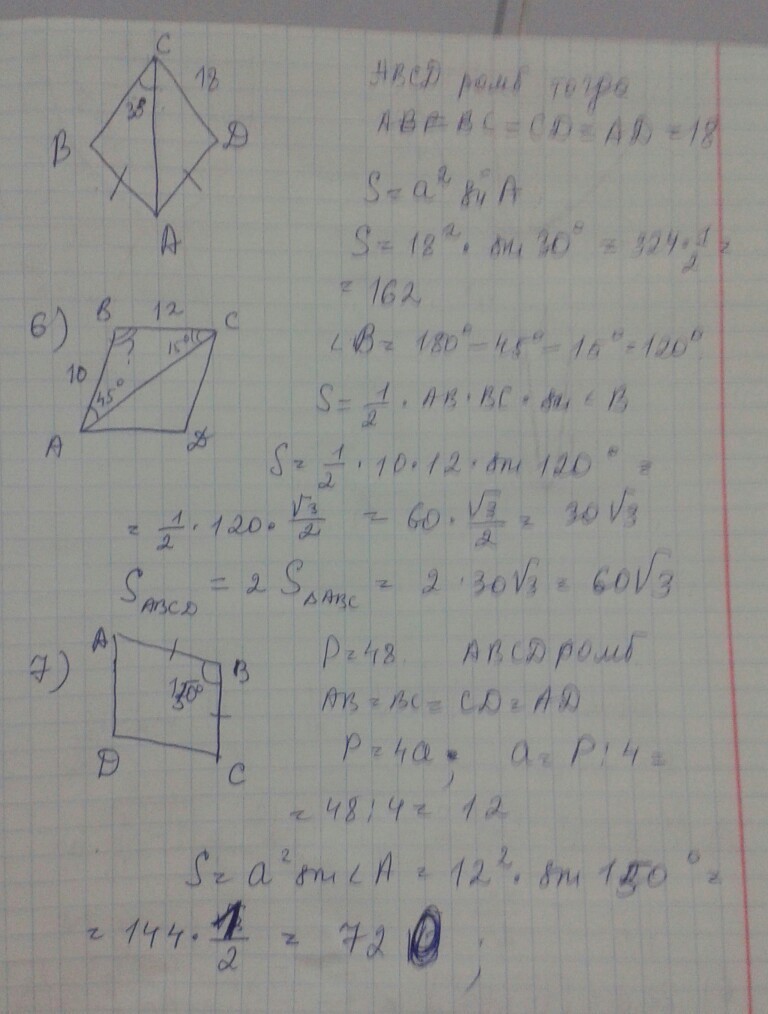 C
18
30
B
D
A
ABCD ромб тогда
AB = BC = CD = AD = 18
S = a² sin A
S = 18² · sin 30° = 324 · 1/2 =
= 162
6)
B 12 C
10
15°
?
45°
A
D
∠B = 180° - 45° - 15° = 120°
S = 1/2 · AB · BC · sin ∠B
S = 1/2 · 10 · 12 · sin 120° =
= 1/2 · 120 · √3/2 = 60 · √3/2 = 30√3
S_ABCD = 2 S_ΔABC = 2 · 30√3 = 60√3
7)
A
B
150°
D
C
P = 48 ABCD ромб
AB = BC = CD = AD
P = 4a; a = P : 4 =
= 48 : 4 = 12
S = a² sin ∠A = 12² · sin 150° =
= 144 · 1/2 = 72 ;